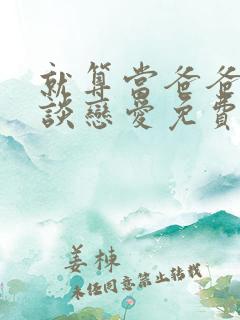 就算當爸爸
談戀愛免費
姜棟
未經同意禁止轉載